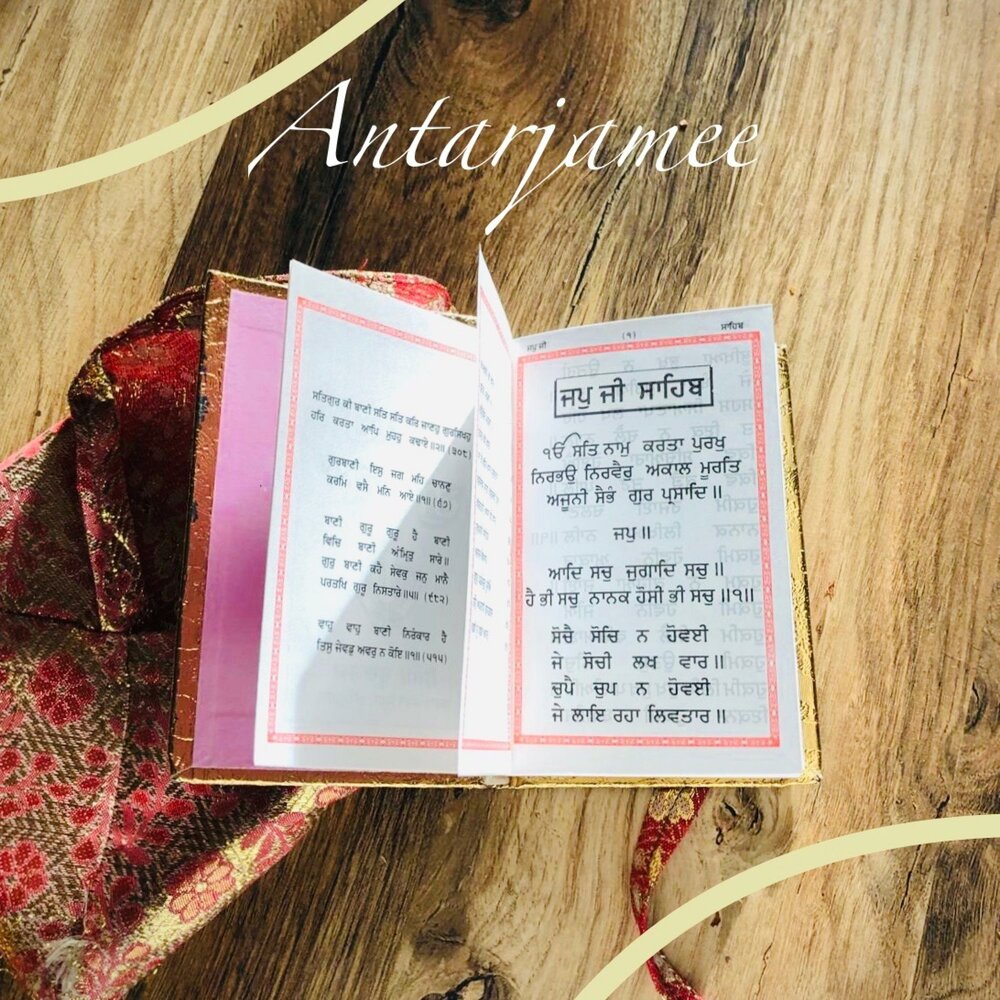 Antarjamee
ਸਤਿਗੁਰ ਕੀ ਬਾਣੀ ਸਤਿ ਸਤਿ ਕਰਿ ਜਾਣਹੁ ਗੁਰਸਿਖਹੁ
ਹਰਿ ਕਰਤਾ ਆਪਿ ਮੁਹਹੁ ਕਢਾਏ॥੨॥ (੩੦੮)
ਗੁਰਬਾਣੀ ਇਸੁ ਜਗ ਮਹਿ ਚਾਨਣੁ
ਕਰਮਿ ਵਸੈ ਮਨਿ ਆਏ॥੧॥ (੬੭)
ਬਾਣੀ ਗੁਰੂ ਗੁਰੂ ਹੈ ਬਾਣੀ
ਵਿਚਿ ਬਾਣੀ ਅੰਮ੍ਰਿਤੁ ਸਾਰੇ॥
ਗੁਰੁ ਬਾਣੀ ਕਹੈ ਸੇਵਕੁ ਜਨੁ ਮਾਨੈ
ਪਰਤਖਿ ਗੁਰੂ ਨਿਸਤਾਰੇ॥੫॥ (੯੮੨)
ਵਾਹੁ ਵਾਹੁ ਬਾਣੀ ਨਿਰੰਕਾਰ ਹੈ
ਤਿਸੁ ਜੇਵਡੁ ਅਵਰੁ ਨ ਕੋਇ॥੧॥ (੫੧੫)
ਜਪੁ ਜੀ (੧) ਸਾਹਿਬ
ਜਪੁ ਜੀ ਸਾਹਿਬ
ੴ ਸਤਿ ਨਾਮੁ ਕਰਤਾ ਪੁਰਖੁ
ਨਿਰਭਉ ਨਿਰਵੈਰੁ ਅਕਾਲ ਮੂਰਤਿ
ਅਜੂਨੀ ਸੈਭੰ ਗੁਰ ਪ੍ਰਸਾਦਿ॥
ਜਪੁ॥
ਆਦਿ ਸਚੁ ਜੁਗਾਦਿ ਸਚੁ॥
ਹੈ ਭੀ ਸਚੁ ਨਾਨਕ ਹੋਸੀ ਭੀ ਸਚੁ॥੧॥
ਸੋਚੈ ਸੋਚਿ ਨ ਹੋਵਈ
ਜੇ ਸੋਚੀ ਲਖ ਵਾਰ॥
ਚੁਪੈ ਚੁਪ ਨ ਹੋਵਈ
ਜੇ ਲਾਇ ਰਹਾ ਲਿਵਤਾਰ॥